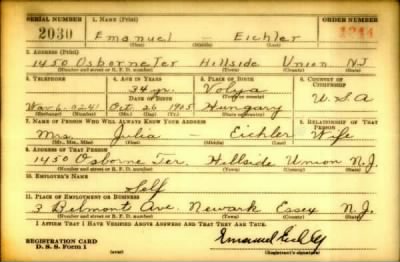 SERIAL NUMBER 1. NAME (Print) ORDER NUMBER
2030 Emanuel - Eichler
(First) (Middle) (Last)
2. ADDRESS (Print)
1450 Osborne Ter Hillside Union NJ
(Number and street or R. F. D. number) (Town) (County) (State)
3. TELEPHONE 4. AGE IN YEARS 5. PLACE OF BIRTH 6. COUNTRY OF CITIZENSHIP
34 yr. Volya
DATE OF BIRTH (Town or county)
Wav. 6. 0241 Oct. 26 1905 Hungary USA
(Exchange) (Number) (Mo.) (Day) (Yr.) (State or country)
7. NAME OF PERSON WHO WILL ALWAYS KNOW YOUR ADDRESS 8. RELATIONSHIP OF THAT PERSON
Mrs. Julia - Eichler Wife
(Mr., Mrs., Miss) (First) (Middle) (Last)
9. ADDRESS OF THAT PERSON
1450 Osborne Ter. Hillside Union N.J.
(Number and street or R. F. D. number) (Town) (County) (State)
10. EMPLOYER'S NAME
Self
11. PLACE OF EMPLOYMENT OR BUSINESS
3 Belmont Ave. Newark Essex N.J.
(Number and street or R. F. D. number) (Town) (County) (State)
I AFFIRM THAT I HAVE VERIFIED ABOVE ANSWERS AND THAT THEY ARE TRUE.
REGISTRATION CARD
D. S. S. Form 1 (over) Emanuel Eichler